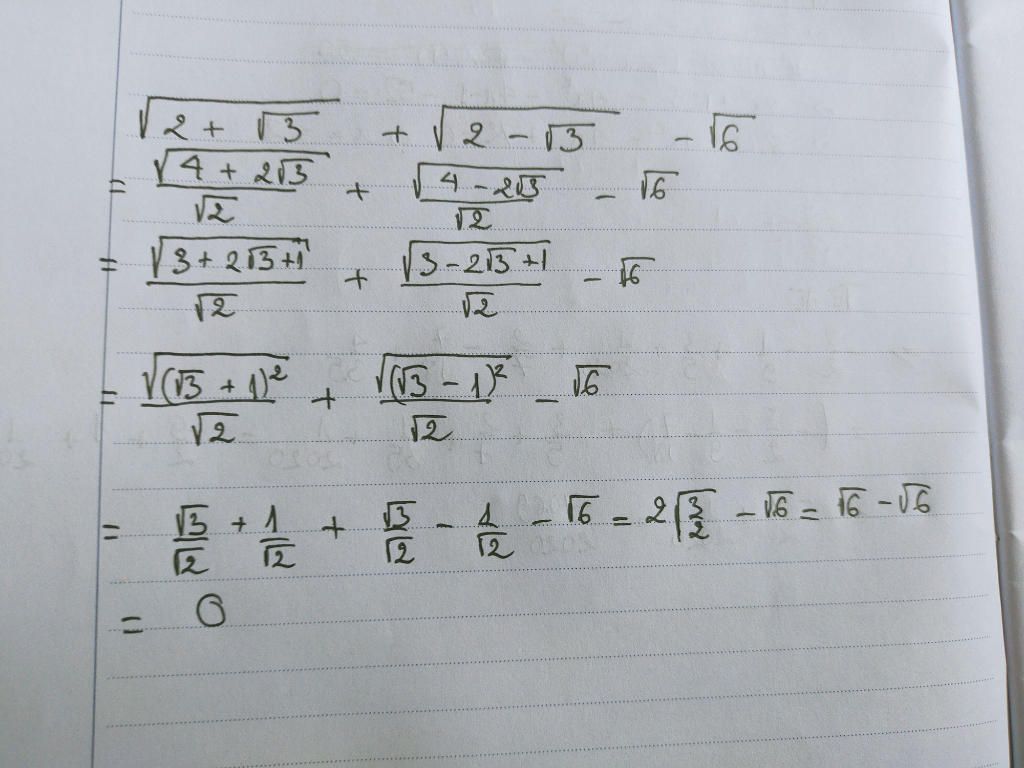 √(2 + √3) + √(2 - √3) - √6
= √(4 + 2√3)/√2 + √(4 - 2√3)/√2 - √6
= √(3 + 2√3 + 1)/√2 + √(3 - 2√3 + 1)/√2 - √6
= √((√3 + 1)²)/√2 + √((√3 - 1)²)/√2 - √6
= √3/√2 + 1/√2 + √3/√2 - 1/√2 - √6 = 2√(3/2) - √6 = √6 - √6
= 0